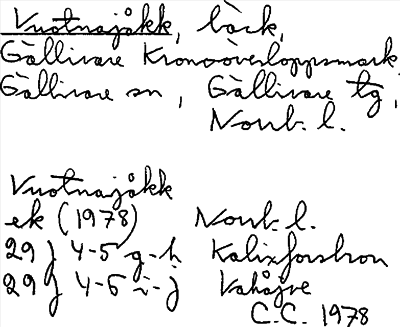 Vuotnajåkk, bäck,
Gällivare Kronoöverloppsmark,
Gällivare sn, Gällivare tg,
Norrb. l.
Vuotnajåkk
ek (1978) Norrb. l.
29 J 4-5 g-h Kalixforsbron
29 J 4-5 i-j Vahåjve
C.C. 1978